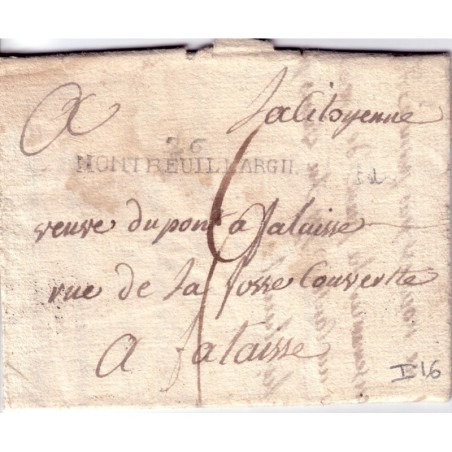 A la Citoyenne
26
MONTREUIL L'ARGIL
veuve dupont a falaisse
rue de la fosse Couvertte
a falaisse
I16